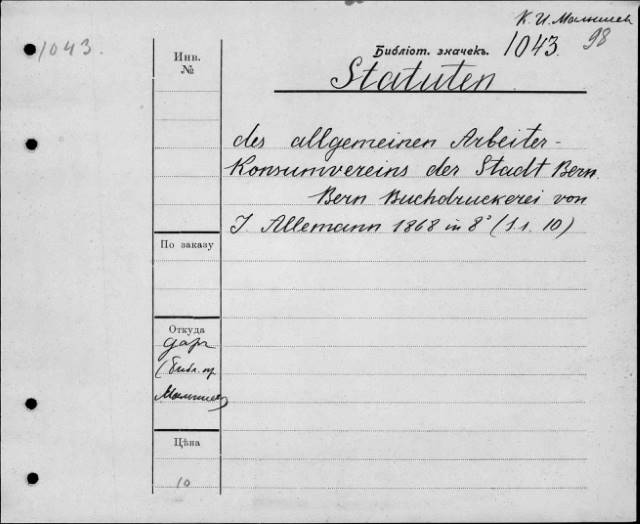 К. И. Малышев
1043.
Инв.
№
Библіот. значекъ.
1043
98
Statuten
des allgemeinen Arbeiter-
Konsumvereins der Stadt Bern.
Bern Buchdruckerei von
J Allemann 1868 in 8° (S.s. 10)
По заказу
Откуда
даръ
(библ. пр
Малышев)
Цѣна
10